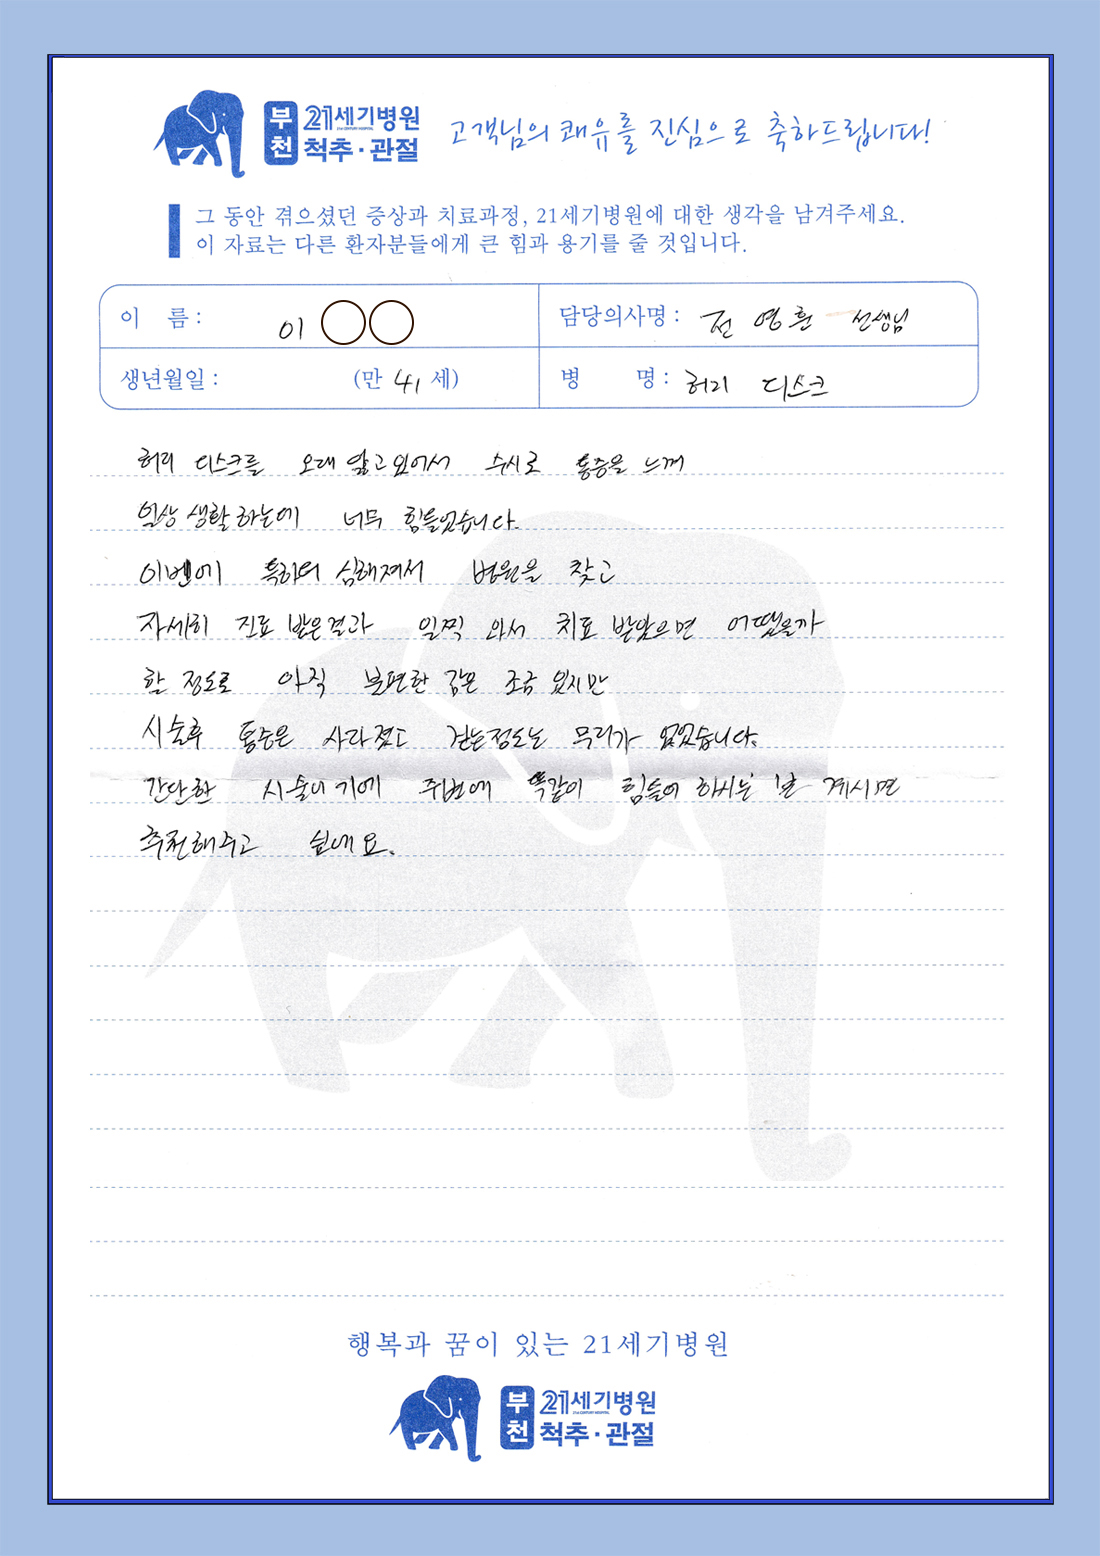 부천 21세기병원
21st CENTURY HOSPITAL
척추·관절
고객님의 쾌유를 진심으로 축하드립니다!
그 동안 겪으셨던 증상과 치료과정, 21세기병원에 대한 생각을 남겨주세요.
이 자료는 다른 환자분들에게 큰 힘과 용기를 줄 것입니다.
이 름 : 이 ○○
담당의사명 : 전 영훈 선생님
생년월일 : (만 41 세)
병 명 : 허리 디스크
허리 디스크를 오래 앓고있어서 수시로 통증을 느껴
일상 생활하는에 너무 힘들었습니다.
이번에 특히 심해져서 병원을 찾고
자세히 진료 받은결과 일찍 와서 치료 받았으면 어땠을까
할 정도로 아직 불편한 감은 조금 있지만
시술후 통증은 사라졌고 걷는정도는 무리가 없었습니다.
간단한 시술이기에 주변에 똑같이 힘들어 하시는 분 계시면
추천해주고 싶네요.
행복과 꿈이 있는 21세기병원
부천 21세기병원
21st CENTURY HOSPITAL
척추·관절